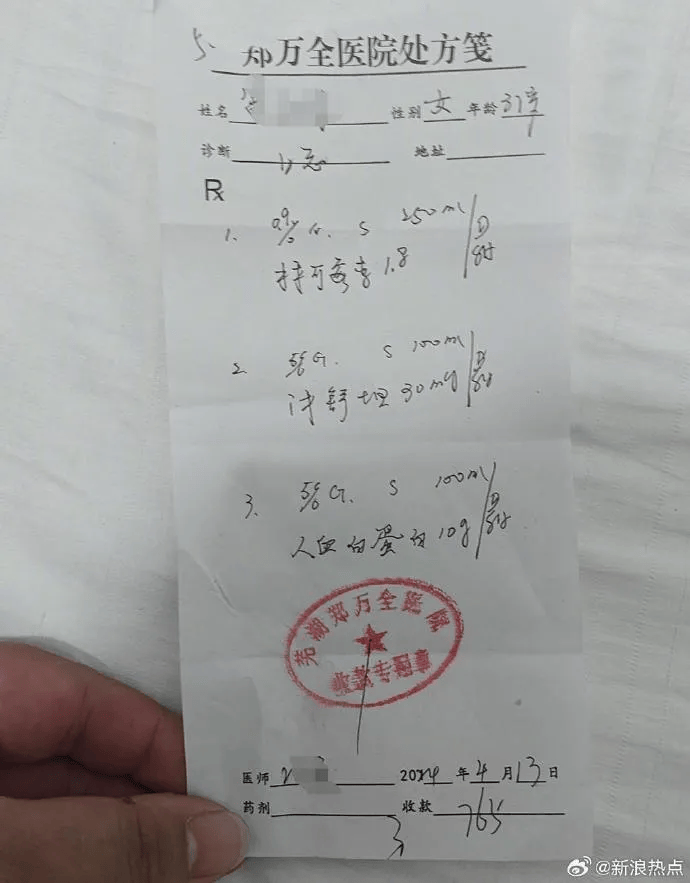 5.
郑万全医院处方笺
姓名 性别 女 年龄 37岁
诊断 地址
Rx
1. 0.9% N. S 250ml
1.8
2. 5% G. S 100ml
沐舒坦 30mg
3. 5% G. S 100ml
人血白蛋白 10g
芜湖郑万全医院
收款专用章
医师 2024年4月13日
药剂 收款 765
@新浪热点